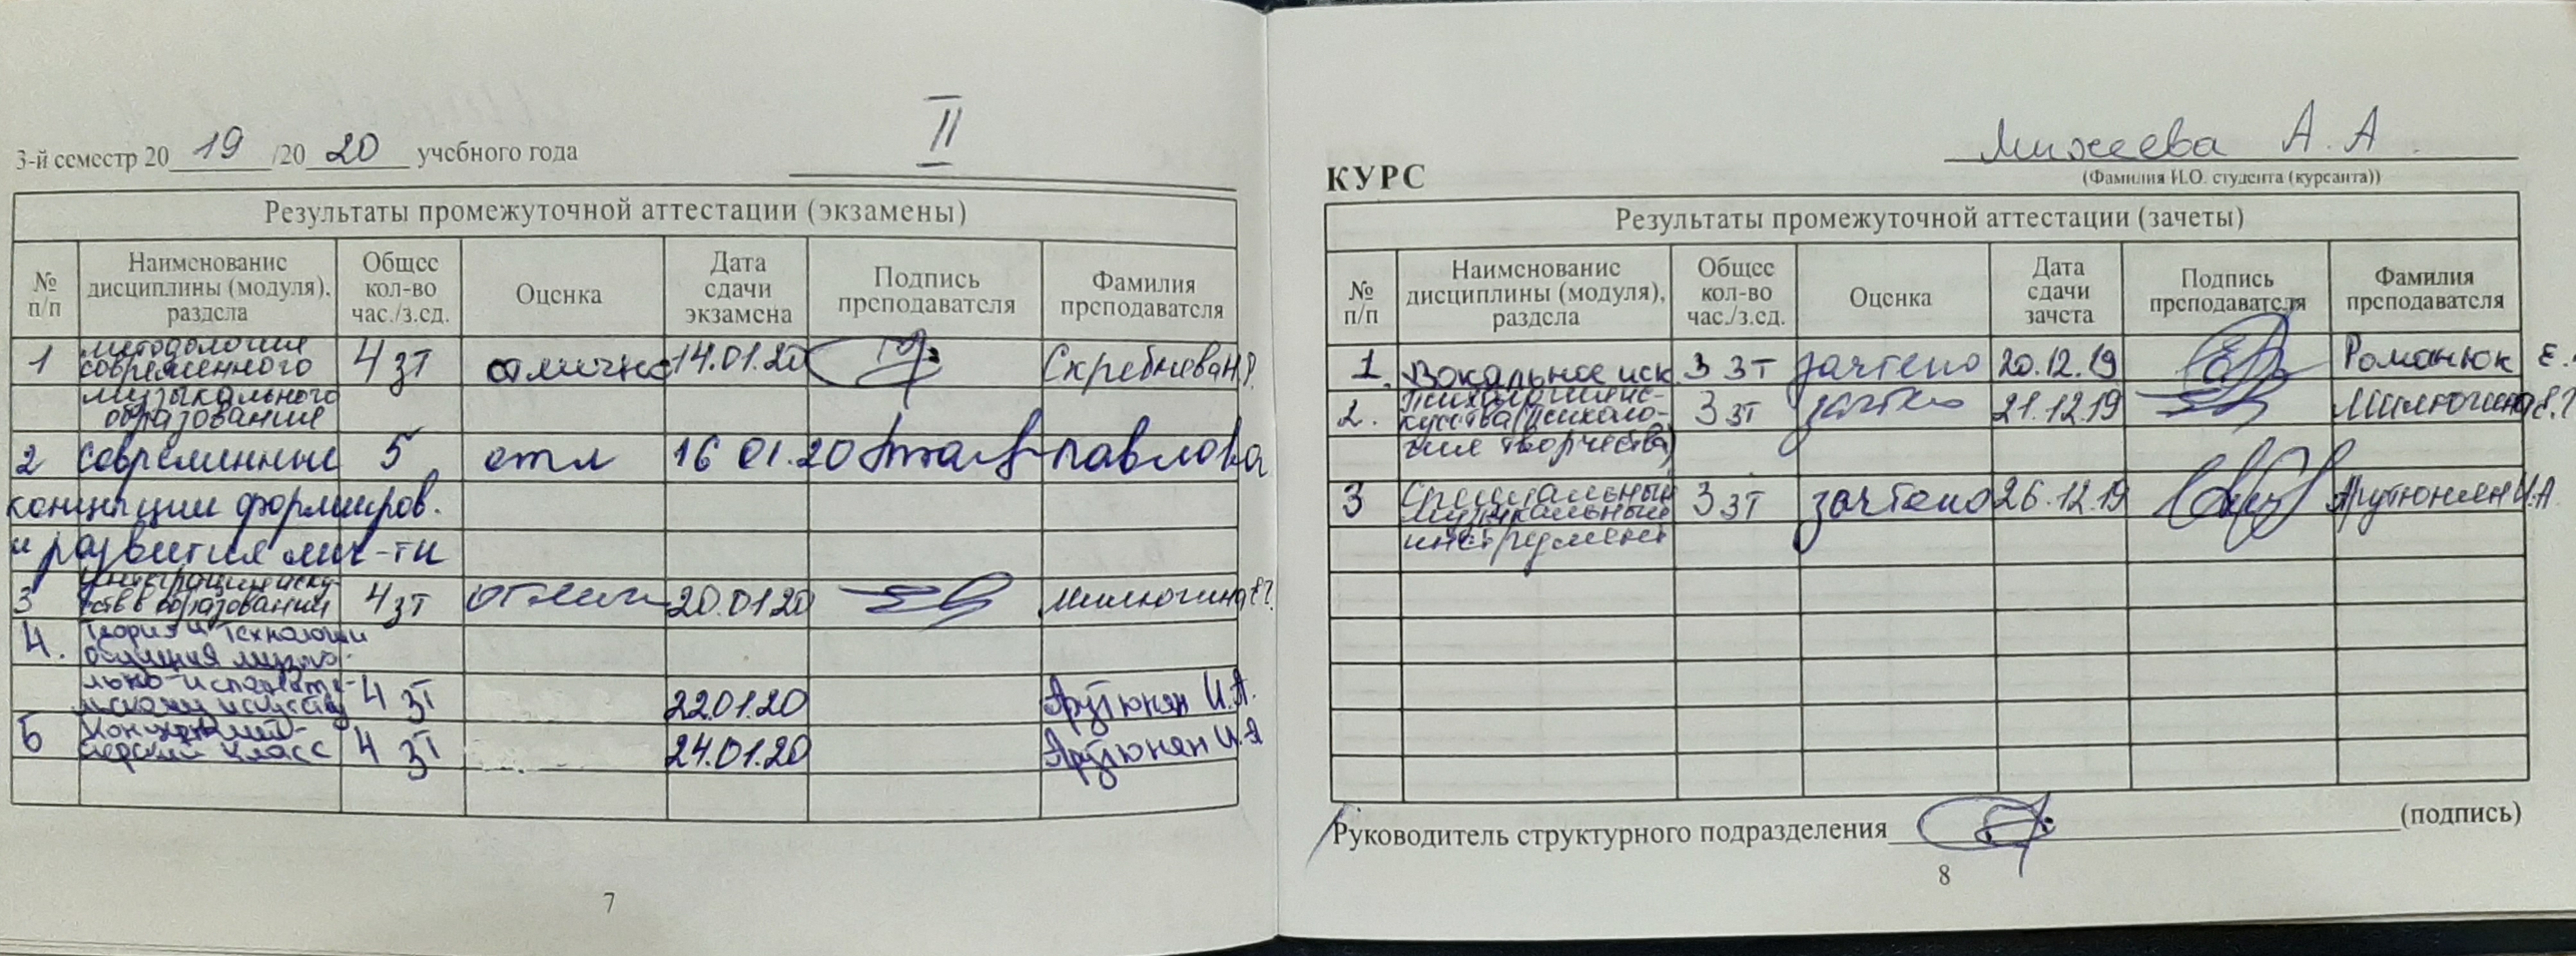 3-й семестр 20 19 /20 20 учебного года
II
Результаты промежуточной аттестации (экзамены)
№ п/п
Наименование дисциплины (модуля), раздела
Общее кол-во час./з.ед.
Оценка
Дата сдачи экзамена
Подпись преподавателя
Фамилия преподавателя
1 методология современного 4 зт отлично 14.01.20 Скребнева Н.Я.
музыкального образования
2 современные 5 отл 16 01.20 Павлова
концепции формиров.
и развития лич-ти
3 Интеграция иску-
сств в образовании 4 зт отлич 20.01 20 Милючина Е.Г.
4. Теория и технологии
обучения музыка-
льно-исполните-
льскому искусству 4 зт 22.01.20 Арутюнян И.А.
5 Концертмей-
стерский класс 4 зт 24.01.20 Арутюнян И.А
7
Михеева А. А.
КУРС
(Фамилия И.О. студента (курсанта))
Результаты промежуточной аттестации (зачеты)
№ п/п
Наименование дисциплины (модуля), раздела
Общее кол-во час./з.ед.
Оценка
Дата сдачи зачета
Подпись преподавателя
Фамилия преподавателя
1. Вокальное иск. 3 зт зачтено 20.12.19 Романюк Е.
2. Психология ис-
кусства (психоло- 3 зт зачтено 21.12.19 Милючина Е.Г
гия творчества)
3 Специальный 3 зт зачтено 26.12.19 Арутюнян И.А.
музыкальный
инструмент
Руководитель структурного подразделения (подпись)
8